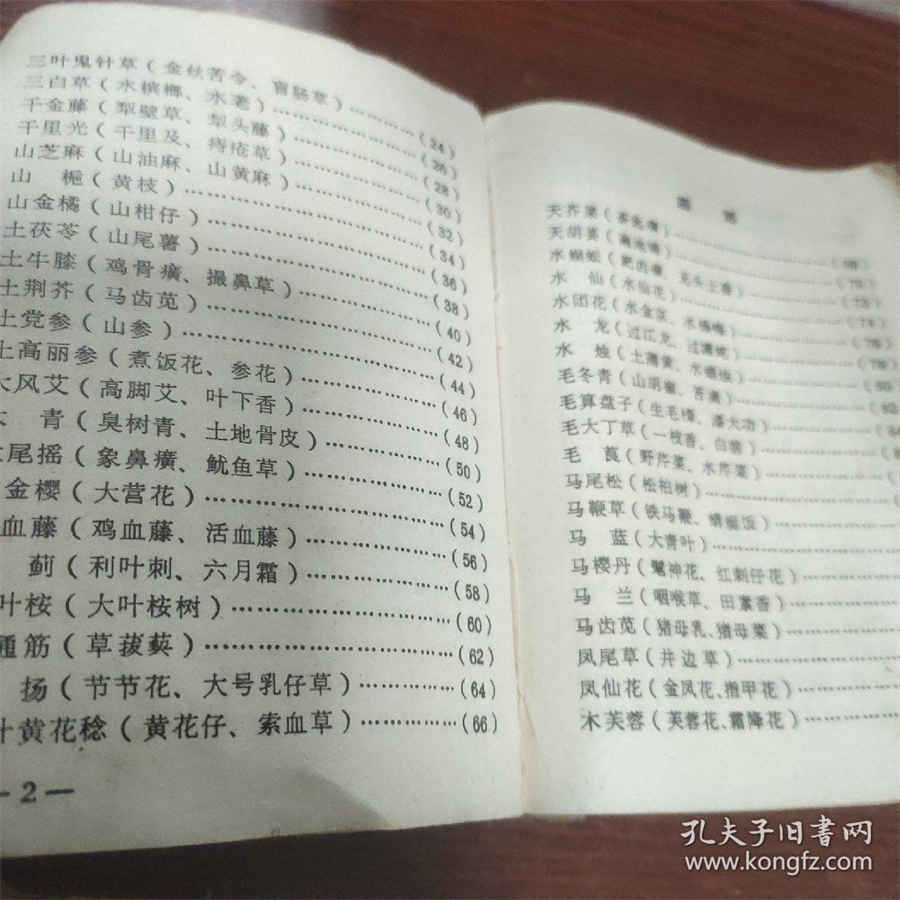 三叶鬼针草(金丝苦令、盲肠草)………(24)
三白草(水槟榔、水荖)………(26)
千金藤(犁壁草、犁头藤)………(28)
千里光(千里及、痔疮草)………(30)
山芝麻(山油麻、山黄麻)………(32)
山 栀(黄枝)………(34)
山金橘(山柑仔)………(36)
土茯苓(山尾薯)………(38)
土牛膝(鸡骨癀、撮鼻草)………(40)
土荆芥(马齿苋)………(42)
土党参(山参)………(44)
土高丽参(煮饭花、参花)………(46)
大风艾(高脚艾、叶下香)………(48)
青(臭树青、土地骨皮)………(50)
尾摇(象鼻癀、鱿鱼草)………(52)
金樱(大营花)………(54)
血藤(鸡血藤、活血藤)………(56)
蓟(利叶刺、六月霜)………(58)
叶桉(大叶桉树)………(60)
通筋(草菝葜)………(62)
扬(节节花、大号乳仔草)………(64)
叶黄花稔(黄花仔、索血草)………(66)
— 2 —
天芥菜
天胡荽
水蜈蚣
水 仙(水仙花)
水团花(水金京、
水 龙(过江龙、过
水 烛(土蒲黄、水蜡烛)
毛冬青(山胡椒、
毛算盘子(生毛
毛大丁草(一枝香、白
毛 茛(野芹菜、水芹菜)
马尾松(松柏树)
马鞭草(铁马鞭、蜻蜓饭)
马 蓝(大青叶)
马樱丹(
红刺仔花)
马 兰(咽喉草、田
马齿苋(猪母乳、猪母菜)
凤尾草(井边草)
凤仙花(金凤花、指甲花)
木芙蓉(芙蓉花、霜降花)
孔夫子旧书网
www.kongfz.com